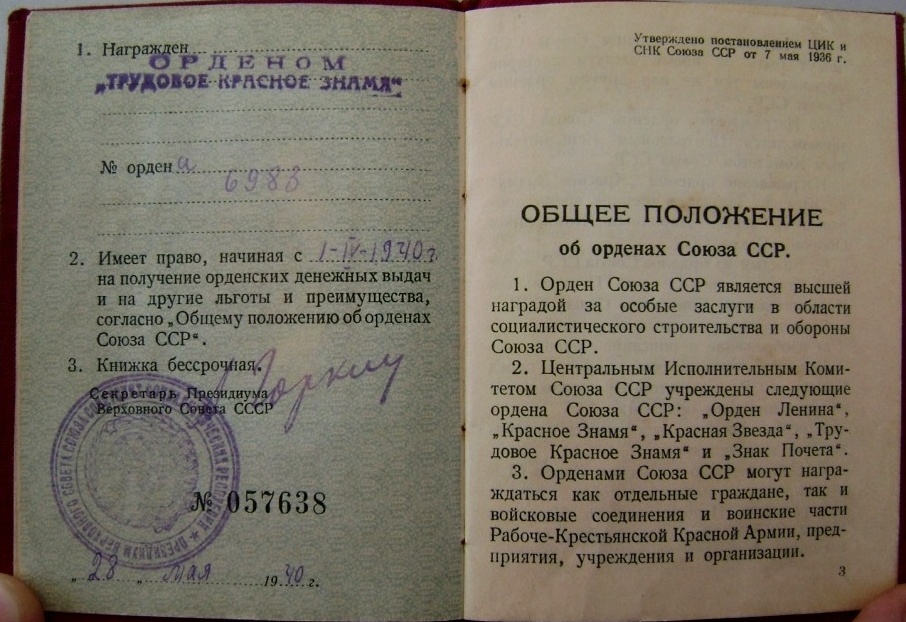 1. Награжден
ОРДЕНОМ
„ТРУДОВОЕ КРАСНОЕ ЗНАМЯ“
№ ордена
6983
2. Имеет право, начиная с 1-IV-1940 г.
на получение орденских денежных выдач
и на другие льготы и преимущества,
согласно „Общему положению об орденах
Союза ССР“.
3. Книжка бессрочная.
Горкин
Секретарь Президиума
Верховного Совета СССР
№ 057638
„28 „ мая 1940 г.
Утверждено постановлением ЦИК и
СНК Союза ССР от 7 мая 1936 г.
ОБЩЕЕ ПОЛОЖЕНИЕ
об орденах Союза ССР.
1. Орден Союза ССР является высшей
наградой за особые заслуги в области
социалистического строительства и обороны
Союза ССР.
2. Центральным Исполнительным Коми-
тетом Союза ССР учреждены следующие
ордена Союза ССР: „Орден Ленина“,
„Красное Знамя“, „Красная Звезда“, „Тру-
довое Красное Знамя“ и „Знак Почета“.
3. Орденами Союза ССР могут награ-
ждаться как отдельные граждане, так и
войсковые соединения и воинские части
Рабоче-Крестьянской Красной Армии, пред-
приятия, учреждения и организации.
3